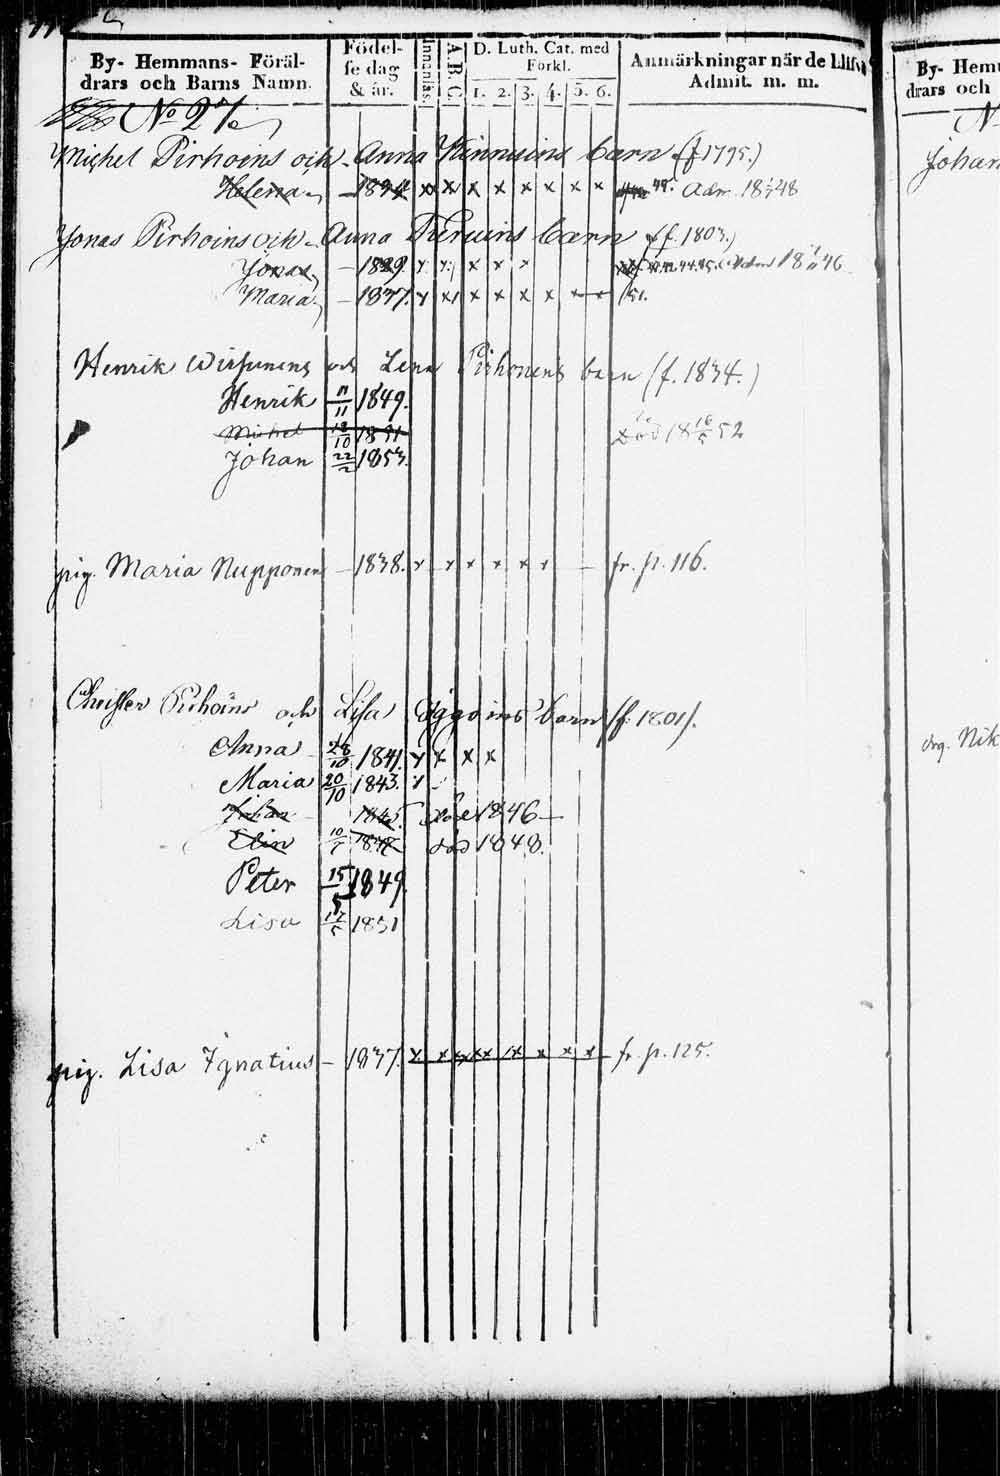 By- Hemmans- Föräl-
drars och Barns Namn.
Födel-
se dag
& år.
Innanläs.
A B C.
D. Luth. Cat. med
Förkl.
1. 2. 3. 4. 5. 6.
Anmärkningar när de blifv
Admit. m. m.
By- Hem
drars och
No 2
Michel Pirhoins och Anna Kinnuins barn (f 1795.)
Helena — 1834 x x x x x x x x 48. Adm. 18 48
Jonas Pirhoins och Anna barn (f. 1803.)
Jonas — 1829. x x x x x 44.45. 18 46
Maria — 1837. x x x x x x x 51.
Henrik Wirsunens och Lena Pirhonens barn (f. 1834.)
Henrik 11/11 1849.
Michel 18/10 1851 Död 18 16/5 52
Johan 22/2 1853.
pig. Maria Nupponen — 1838. x x x x x x — fr. p. 116.
Christer Pirhoins och Lisa barn (f. 1801).
Anna 28/10 1841. x x x x
Maria 20/10 1843. x
Johan 1845. död 1846
Elin 10/7 död 1848.
Peter 15/5 1849.
Lisa 17/5 1851
pig. Lisa Ignatius — 1837. x x x x x x x x fr. p. 125.
Johan
drg. Nik